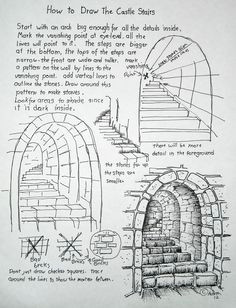 How to Draw The Castle Stairs
Start with an arch big enough for all the details inside.
Mark the vanishing point at eye level, all the
lines will point to it. The steps are bigger
at the bottom, the tops of the steps are
narrow. the front are wide and taller.
a pattern on the wall by lines to the
vanishing point. add vertical lines to
outline the stones. Draw around this
pattern to make stones.
Look for areas to shade since
it is dark inside.
mark
vanishing
Point
there will be more
detail in the foreground
the stones far up
the steps are
smaller
Bad
bricks
Bad
bricks
Good
Dont just draw checker squares. trace
around the lines to show the mortar between.